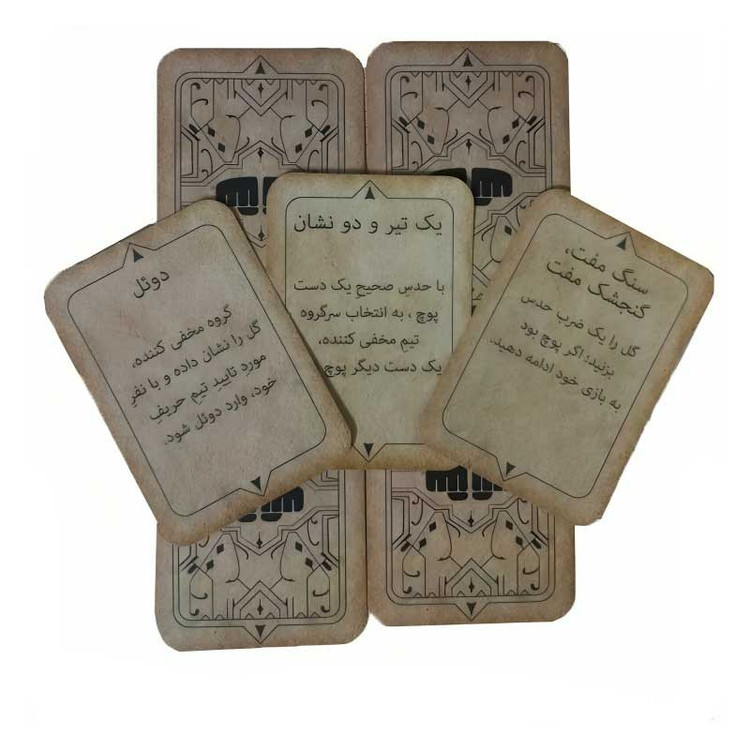 یک تیر و دو نشان
با حدسِ صحیحِ یک دست
پوچ ، به انتخاب سرگروه
تیمِ مخفی کننده،
یک دست دیگر پوچ
سنگ مفت،
گنجشک مفت
گل را یک ضرب حدس
بزنید؛ اگر پوچ بود
به بازی خود ادامه دهید.
دوئل
گروه مخفی کننده،
گل را نشان داده و با نفرِ
موردِ تاییدِ تیمِ حریفِ
خود، وارد دوئل شود.